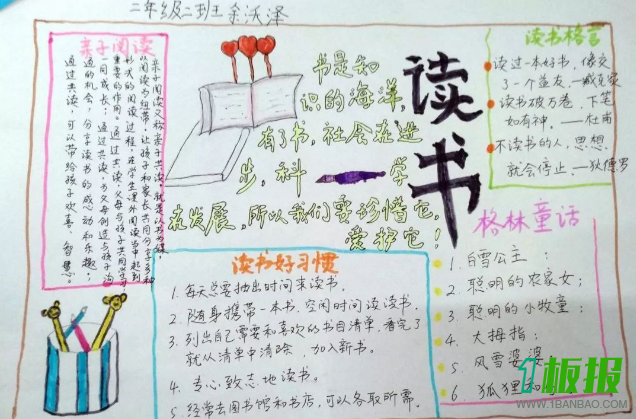 二年级二班 余沃泽
亲子阅读
亲子阅读又称亲子共读,就是以书为媒,
以阅读为纽带,让孩子和家长共同分享多种
形式的阅读过程。在学生课外阅读当中起到
重要的作用。通过共读,父母与孩子共同学习,
一同成长;通过共读,为父母创造与孩子沟
通的机会,分享读书的感动和乐趣;
通过共读,可以带给孩子欢喜、智慧。
书是知
识的海洋,
有了书,社会在进
步,科学
在发展,所以我们要珍惜它,
爱护它!
读书
读书格言
读过一本好书,像交
了一个益友。—臧克家
读书破万卷,下笔
如有神。—杜甫
不读书的人,思想
就会停止。—狄德罗
读书好习惯
1. 每天总要抽出时间来读书。
2. 随身携带一本书,空闲时间读读书。
3. 列出自己需要和喜欢的书目清单,看完了
就从清单中清除,加入新书。
4. 专心致志地读书。
5. 经常去图书馆和书店,可以各取所需。
格林童话
1. 白雪公主;
2. 聪明的农家女;
3. 聪明的小牧童;
4. 大拇指;
5. 风雪婆婆
6. 狐狸和
1板报
WWW.1BANBAO.COM